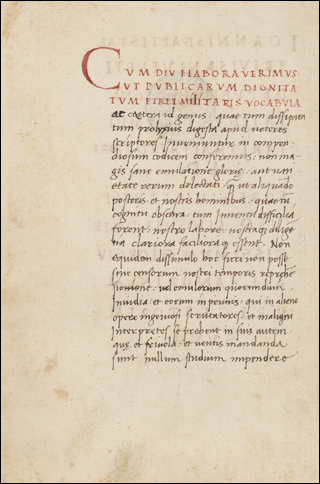 CVM DIV ELABORAVERIMVS
VT PVBLICARVM DIGNITA
TVM ET REI MILITARIS VOCABVLA
ac caetera id genus: quae tum dissipata
tum prolixius digesta apud ueteres
scriptores inueniuntur in compen
diosum codicem conferremus: non ma
gis sane emulatione glorie: aut uan
etate rerum delectati: q ut aliquado
posteris et nostris hominibus: quae tu
cognitu obscura: tum inuentu difficilia
forent: nostro labore: nostraq dilige
tia clariora facilioraq essent. Non
equidem dissimulo hoc fieri non posse
sine censorum nostri temporis reprehe
sione: uel emulorum quorundam
inuidia: et eorum in primis: qui in alieno
opere ingeniosi scrutatores: et maligni
interpretes se prebent in suis autem
que et friuola: et uentis mandanda
sunt nullum studium impendere